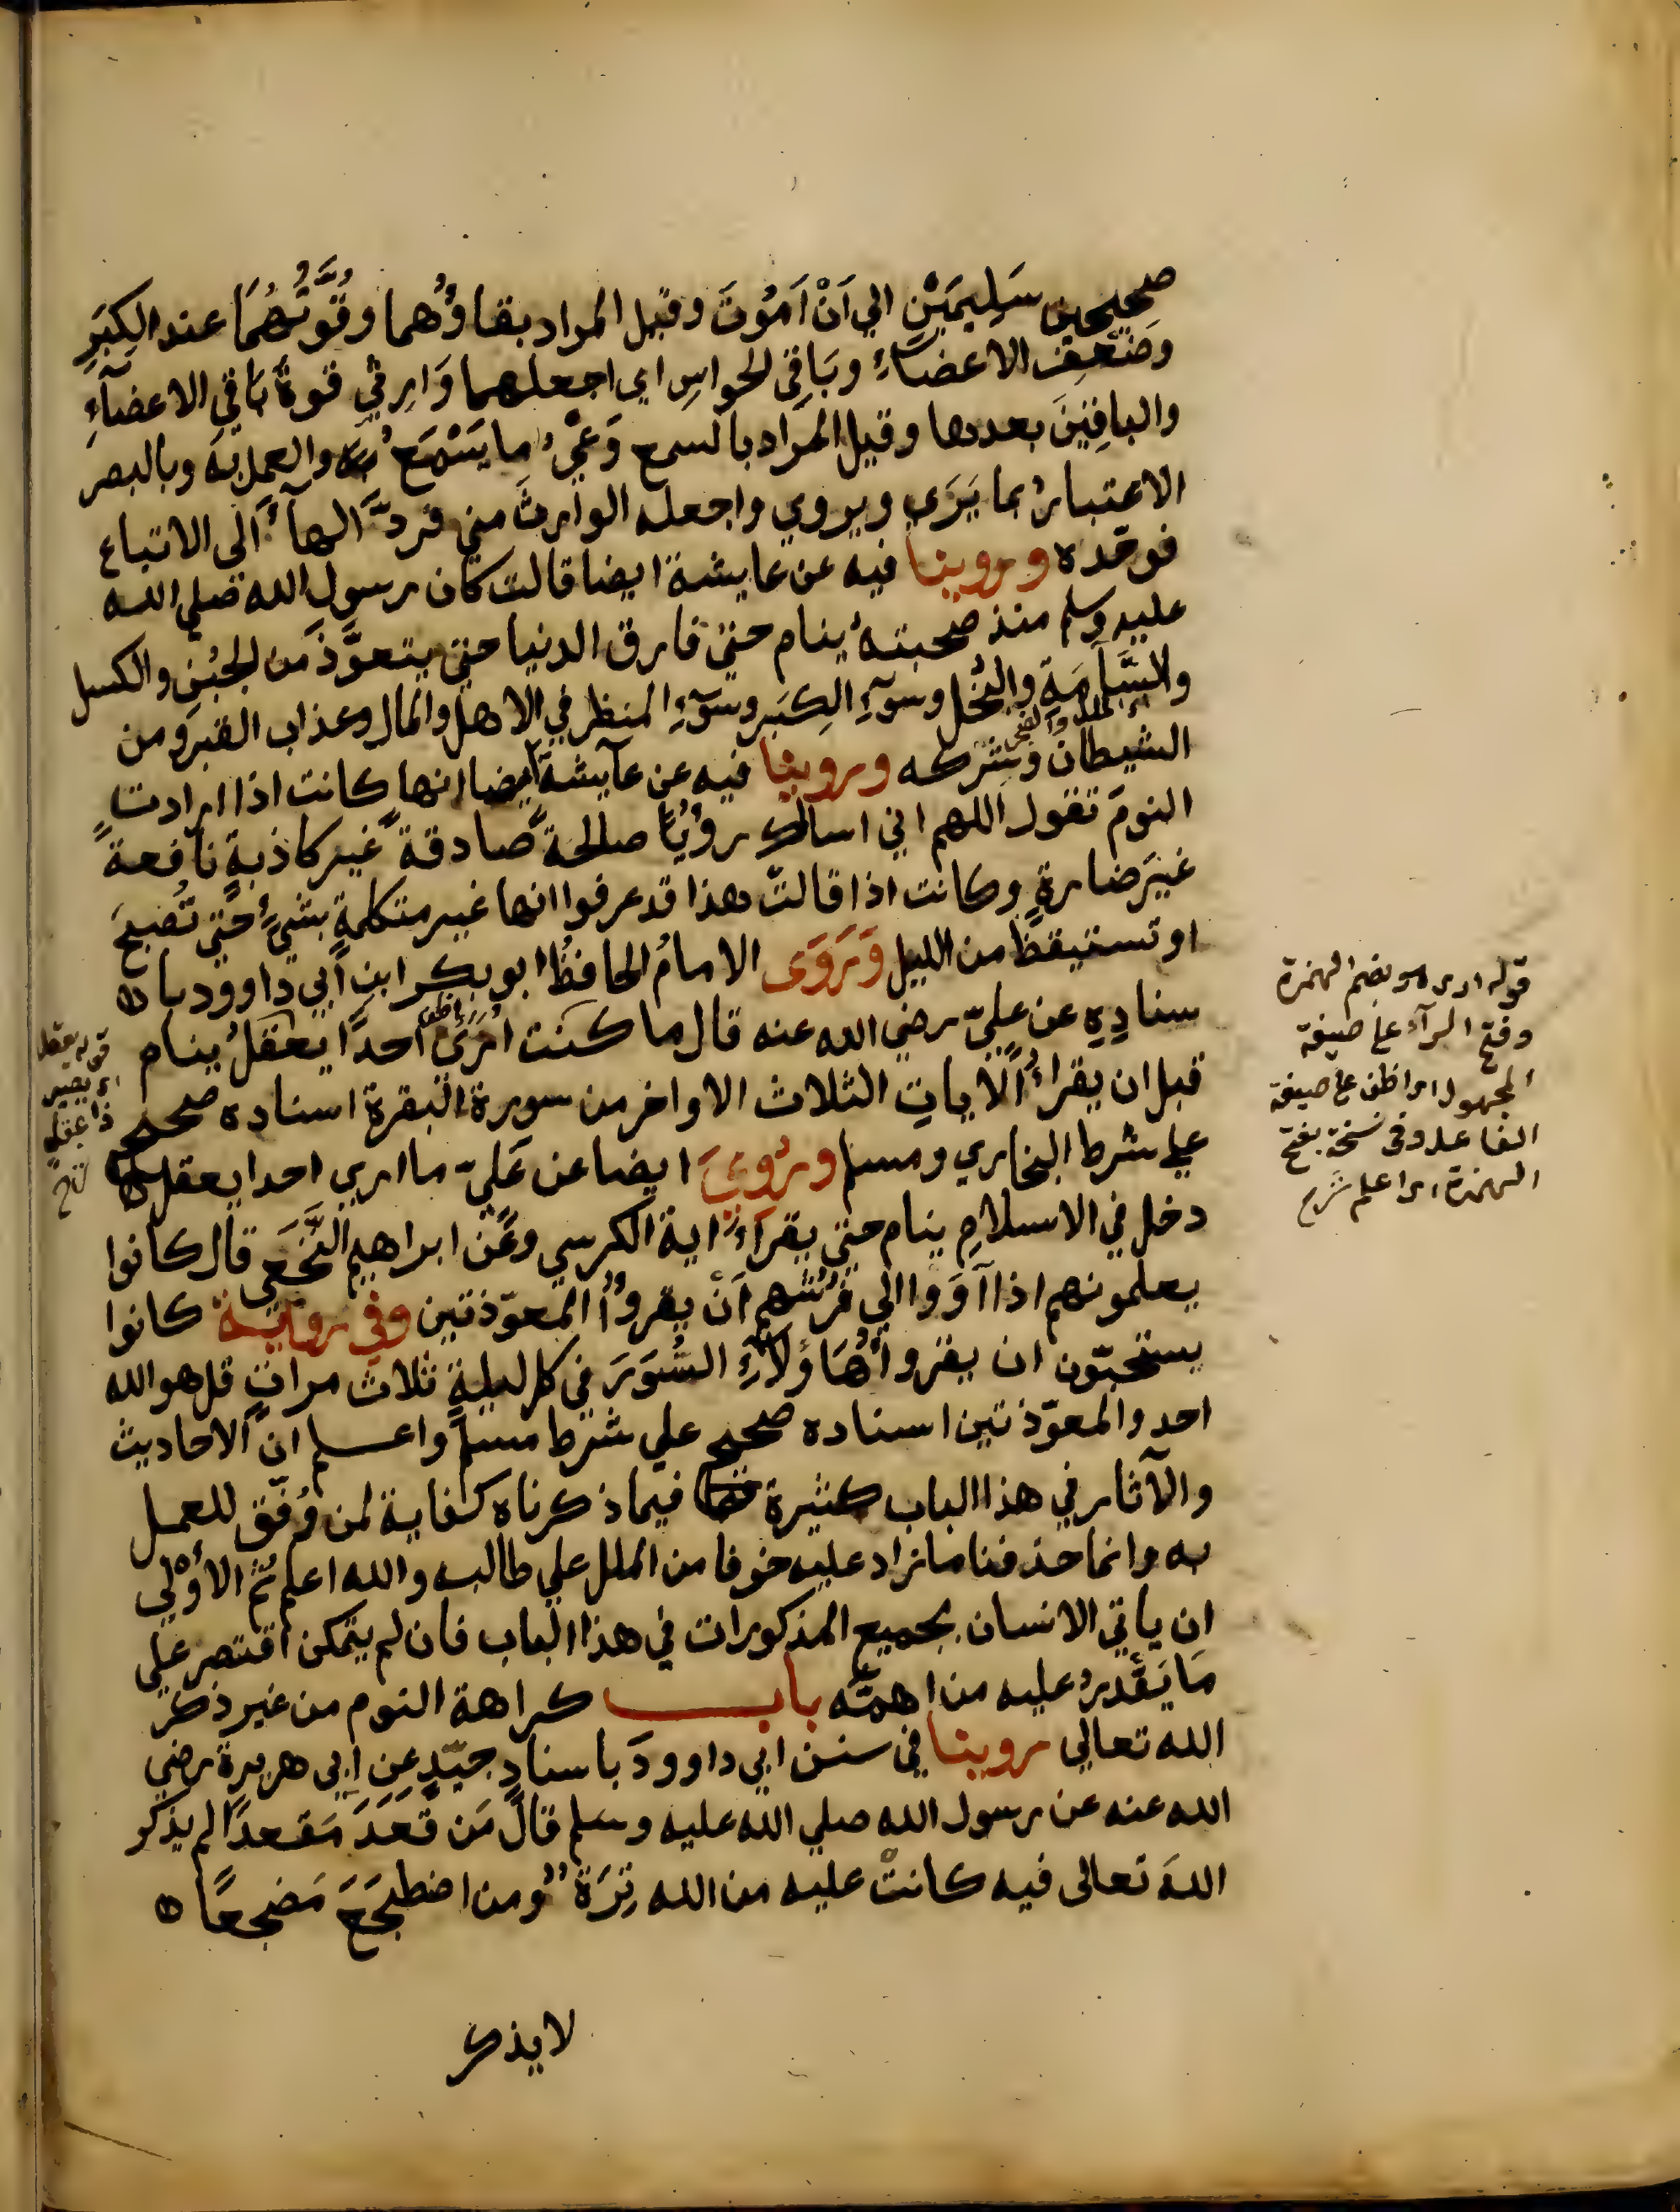 صحيحين سَلِيمَيْنِ الي اَنْ اَمُوتَ وقيل المراد بقاؤُهما وقُوَّتُهُمَا عند الكِبَرِ
وضَعْفِ الاعضآءِ وبَاقِي الحواسِ اي اجعلهما وَارِثيْ قوةِ بَاقي الاعضآءِ
والباقِيَينَ بعدها وقيل المراد بالسمع وَعْيُ ما يَسْمَعُ والعمل به وبالبصر
الاعتبارُ بما يَرَى ويروي واجعله الوارثَ مني فردَّ الهآءَ الى الامتاع
فوحّده وروينا فيه عن عايشة ايضا قالت كان رسول الله صلي الله
عليه وسلم منذ صحبتهُ ينام حتي فارق الدنيا حتي يتعوَّذَ من الجُبْنِ والكسل
والسَّآمَةِ والبُخل وسوءِ الكِبَر وسوءِ المنظر في الاهل والمال وعذاب القبر ومن
الشيطان وشِركه وروينا فيه عن عآيشة ايضا انها كانت اذا ارادت
النومَ تقول اللهم اني اسالك رؤيًا صالحةً صادقةً غير كاذبةٍ نافعةً
غيرَ ضارةٍ وكانت اذا قالت هذا قد عرفوا انها غير متكلمةٍ بشيءٍ حتي تُصبحَ
او تستيقظَ من الليل وَرَوَى الامامُ الحافظُ ابو بكر ابن ابي داوود با
سنادِهِ عن عليّ رضي الله عنه قال ما كنت اُرَى احدًا يعقلُ ينام
قبل ان يقراءَ الاياتِ الثلاث الاواخر من سورة البقرة اسناده صحيح
علي شرط البخاري ومسلم ورُوِيَ ايضا عن عَليّ ما اري احدا يعقل
دخل في الاسلامِ ينام حتي يقرآءَ اية الكرسي وعَن ابراهيم النَّخَعِي قال كانوا
يعلمونهم اذا آوَوا الي فُرُشِهم اَنْ يقروُا المعوّذتين وفي رواية كانوا
يستحبّون ان يقروا هَاؤُلآءِ السُّوَرَ في كل ليلةٍ ثلاثَ مراتٍ قل هو الله
احد والمعوّذتين اسناده صحيح علي شرط مسلم واعلم ان الاحاديث
والآثار في هذا الباب كثيرة فيما ذكرناه كفاية لمن وُفّق للعمل
به وانما حذفنا ما زاد عليه خوفا من الملل علي طالبه والله اعلم ثُمّ الأوْلي
ان ياتي الانسان بجميع المذكورات في هذا الباب فان لم يتمكن اقتصر علي
مَا يَقْدِرُ عليه من اهمّه باب كراهة النوم من غير ذكر
الله تعالي روينا في سنن ابي داوودَ باسنادٍ جيّدٍ عن ابي هريرة رضي
الله عنه عن رسول الله صلي الله عليه وسلم قال مَن قَعَدَ مَقعدًا لم يذكر
اللهَ تعالى فيه كانتْ عليه من الله تِرَةٌ ومن اضطجَعَ مَضجعًا
لا يذكر
قوله ارى هو بضم الهمزة
وفتح الرآء على صيغة
المجهول اي اظن على صيغة
الفاعل وفي نسخة بفتح
الهمزة اي اعلم شرح
قوله يعقل
اي يصير
ذا عقل